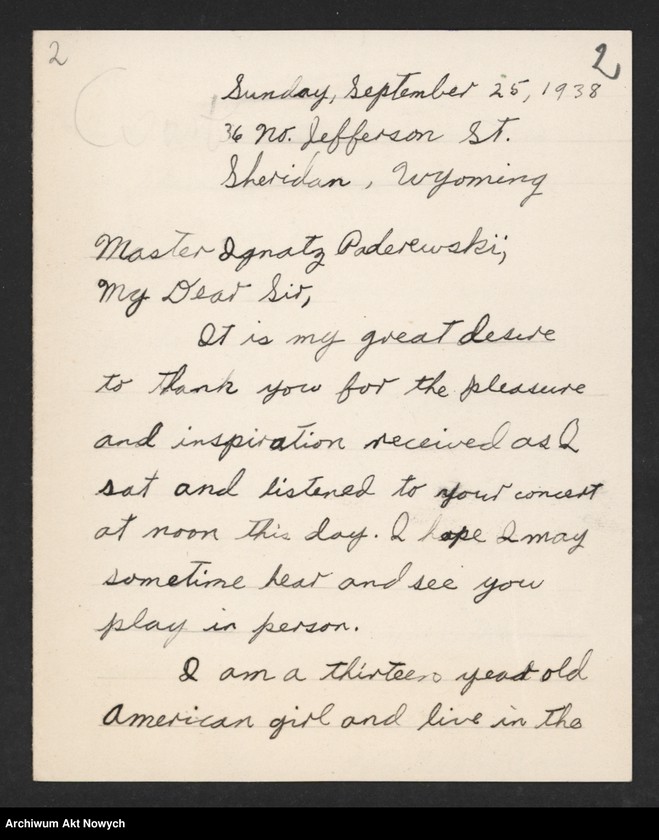 2
2
Sunday, September 25, 1938
36 No. Jefferson St.
Sheridan, Wyoming
Master Ignatz Paderewski;
My Dear Sir,
It is my great desire
to thank you for the pleasure
and inspiration received as I
sat and listened to your concert
at noon this day. I hope I may
sometime hear and see you
play in person.
I am a thirteen year old
American girl and live in the
Archiwum Akt Nowych